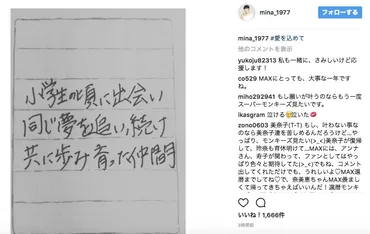 小学生の頃に出会い
同じ夢を追い続け
共に歩み育った仲間
mina_1977
フォローする
mina_1977 #愛を込めて
他のコメントを表示
yukoju82313 私も一緒に、さみしいけど応援します！
co529 MAXにとっても、大事な一年ですね。
miho292941 もし願いが叶うのならもう一度スーパーモンキーズ見たいです。
ikasgram 泣ける😢泣いた💋
zono0603 美奈子(T-T) もし、叶わない事なのなら美奈子達を苦しめるんだろうけど…やっぱり、モンキーズ見たい(>_<)美奈子が復帰して、玲奈も育休明けて…MAXには、アンナさん、寿子が関わって、ファンとしてはやっぱり色々と期待してた(>_<)でもね、コメント出してくれただけでも、うれしいよ♡MAX還暦までしてね♡で、奈美恵ちゃんMAX羨ましくて帰ってきちゃえばいいんだ！還暦モンキ
いいね！1,666件